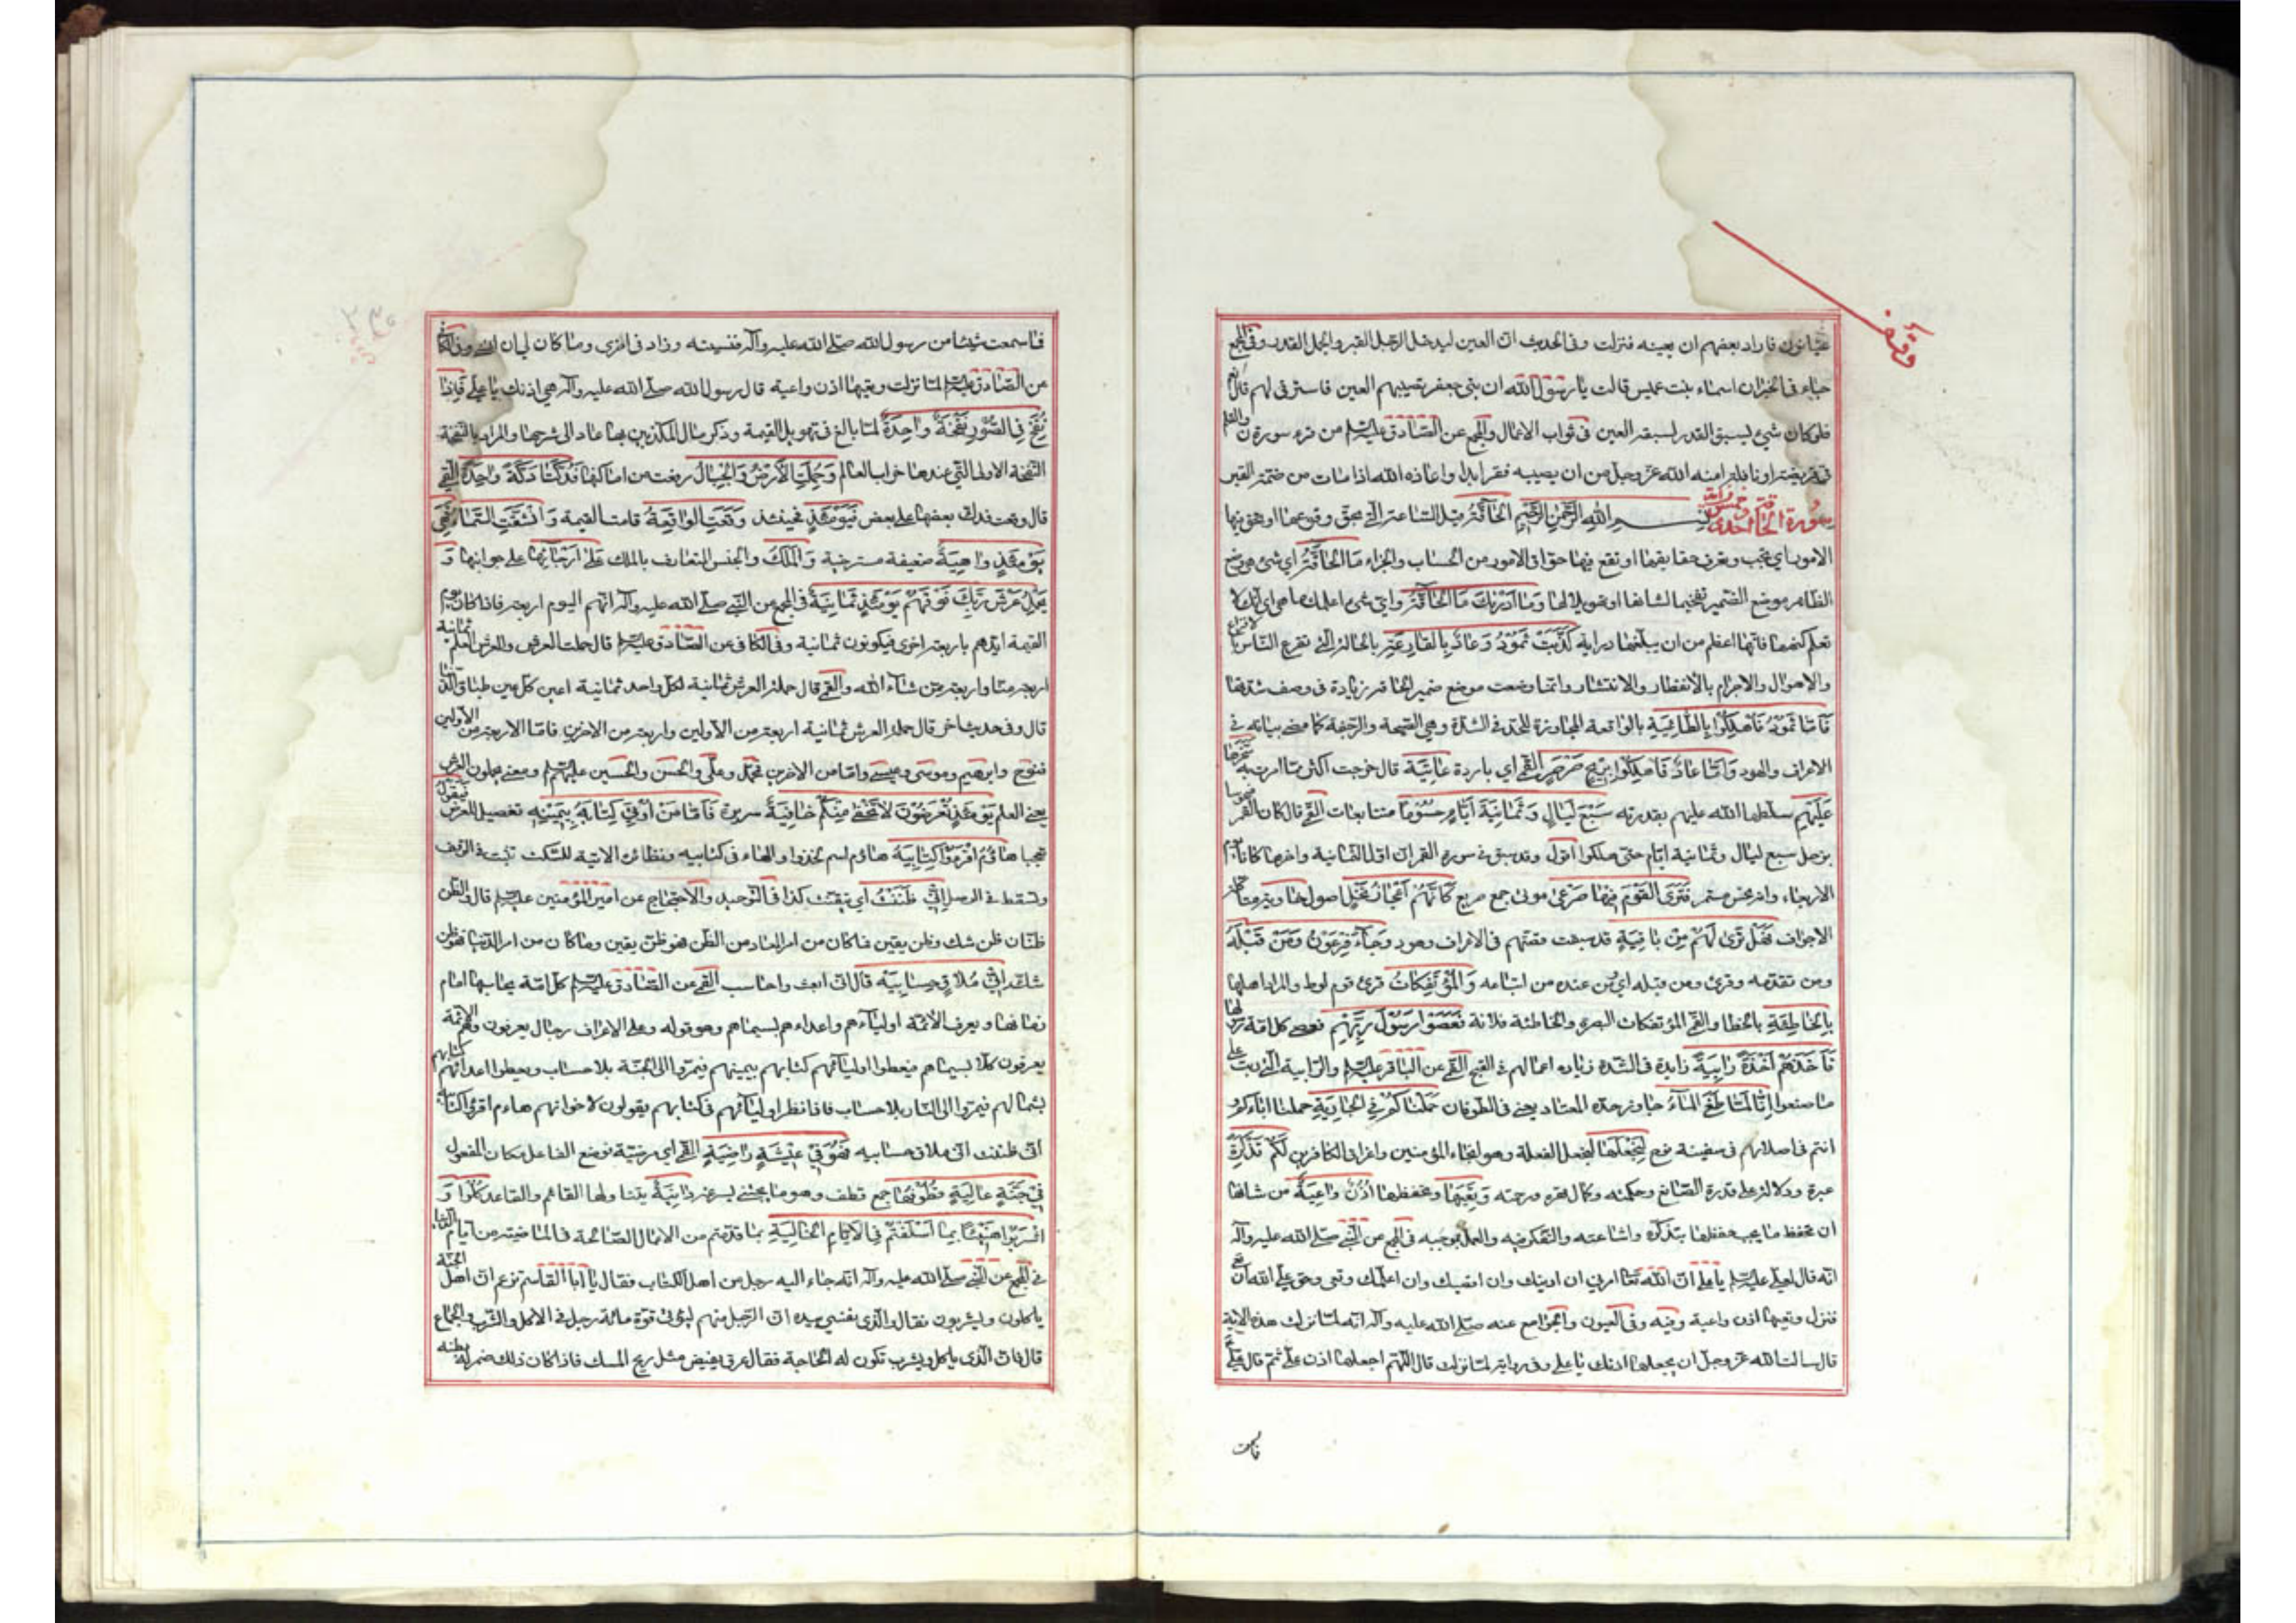 عيانون فاراد بعضهم ان يعينه فنزلت وفى الحديث ان العين ليدخل الرجل القبر والجمل القدر وفى المجمع
جاء فى الخبر ان اسماء بنت عميس قالت يا رسول الله ان بنى جعفر تصيبهم العين فاسترقى لهم قال نعم
فلو كان شئ ليسبق القدر لسبقه العين فى ثواب الاعمال والمجمع عن الصادق عليه السلم من قرء سورة ن والقلم
فى فريضة او نافلة امنه الله عز وجل من ان يصيبه فقر ابدا واعاذه الله اذا مات من ضمة القبر
سورة الحاقة احدى وخمسون آية بسم الله الرحمن الرحيم الحاقة قيل الساعة التى يحق وقوعها او يحق فيها
الامور اى يجب ويعرف حقايقها او تقع فيها حواق الامور من الحساب والجزاء ما الحاقة اى شئ هى وضع
الظاهر موضع الضمير تفخيما لشانها وتهويلا لها وما ادريك ما الحاقة واى شئ اعلمك ما هى اى انك لا
تعلم كنهها فانها اعظم من ان يبلغها دراية كذبت ثمود وعاد بالقارعة بالحالة التى تقرع الناس بالافزاع
والاهوال والاجرام بالانفطار والانتشار وانما وضعت موضع ضمير الحاقة زيادة فى وصف شدتها
فاما ثمود فاهلكوا بالطاغية بالواقعة المجاوزة للحد فى الشدة وهى الصيحة والرجفة كما مضى بيانه فى
الاعراف والهود واما عاد فاهلكوا بريح صرصر القمى اى باردة عاتية قال خرجت اكثر مما امرت به سخرها
عليهم سلطها الله عليهم بقدرته سبع ليال وثمانية ايام حسوما متتابعات القمى قال كان القمر منحوسا
بزحل سبع ليال وثمانية ايام حتى هلكوا اقول وقد سبق فى سورة القمر ان اول الثمانية واخرها كانا يوم
الاربعاء وانه نحس مستمر فترى القوم فيها صرعى موتى جمع صريع كانهم اعجاز نخل اصول نخل خاوية متاكلة
الاجواف فهل ترى لهم من باقية قد سبقت قصتهم فى الاعراف وهود وجاء فرعون ومن قبله
ومن تقدمه وقرئ ومن قبله اى من عنده من اتباعه والمؤتفكات قرى قوم لوط والمراد اهلها
بالخاطئة بالخطا والقمى المؤتفكات البصرة والخاطئة فلانة فعصوا رسول ربهم فعصى كل امة رسولها
فاخذهم اخذة رابية زايدة فى الشدة زيادة اعمالهم فى القبح القمى عن الباقر عليه السلم والرابية التى اربت على
ما صنعوا انا لما طغى الماء جاوز حده المعتاد يعنى فى الطوفان حملناكم فى الجارية حملنا اباءكم و
انتم فى اصلابهم فى سفينة نوح لنجعلها لنجعل الفعلة وهو انجاء المؤمنين واغراق الكافرين لكم تذكرة
عبرة ودلالة على قدرة الصانع وحكمته وكمال قهره ورحمته وتعيها وتحفظها اذن واعية من شانها
ان تحفظ ما يجب حفظها بتذكره واشاعته والتفكر فيه والعمل بموجبه فى المجمع عن النبى صلى الله عليه وآله
انه قال لعلى عليه السلم يا على ان الله تعالى امرنى ان ادنيك وان اقصيك وان اعلمك وتعى وحق على الله ان تعى
فنزل وتعيها اذن واعية وفيه وفى العيون والجوامع عنه صلى الله عليه وآله انه لما نزلت هذه الاية
قال سالت الله عز وجل ان يجعلها اذنك يا على وفى رواية لما نزلت قال اللهم اجعلها اذن على ثم قال على
فما سمعت شيئا من رسول الله صلى الله عليه وآله فنسيته وزاد فى اخرى وما كان لى ان انسى وفى الكافى
عن الصادق عليه السلم لما نزلت وتعيها اذن واعية قال رسول الله صلى الله عليه وآله هى اذنك يا على فاذا
نفخ فى الصور نفخة واحدة لما بالغ فى تهويل القيمة وذكر مال المكذبين بها عاد الى شرحها والمراد بالنفخة
النفخة الاولى التى عندها خراب العالم وحملت الارض والجبال رفعت من اماكنها فدكتا دكة واحدة القمى
قال وقعت فدك بعضها على بعض فيومئذ فحينئذ وقعت الواقعة قامت القيمة وانشقت السماء فهى
يومئذ واهية ضعيفة مسترخية والملك والجنس المتعارف بالملك على ارجائها على جوانبها و
يحمل عرش ربك فوقهم يومئذ ثمانية فى المجمع عن النبى صلى الله عليه وآله انهم اليوم اربعة فاذا كان يوم
القيمة ايدهم باربعة اخرى فيكونون ثمانية وفى الكافى عن الصادق عليه السلم قال حملة العرش والعرش العلم ثمانية
اربعة منا واربعة ممن شاء الله والقمى قال حملة العرش ثمانية لكل واحد ثمانية اعين كل عين طباق الدنيا
قال وفى حديث اخر قال حملة العرش ثمانية اربعة من الاولين واربعة من الاخرين فاما الاربعة من الاولين
فنوح وابرهيم وموسى وعيسى واما من الاخرين فمحمد وعلى والحسن والحسين عليهم السلم ومعنى يحملون العرش
يعنى العلم يومئذ تعرضون لا تخفى منكم خافية سريرة فاما من اوتى كتابه بيمينه تفصيل للعرض فيقول
تبجحا هاؤم اقرؤا كتابيه هاؤم اسم لخذوا والهاء فى كتابيه ونظائره الاتية للسكت تثبت فى الوقف
وتسقط فى الوصل انى ظننت اى تيقنت كذا فى التوحيد والاحتجاج عن امير المؤمنين عليه السلم قال والظن
ظنان ظن شك وظن يقين فما كان من امر المعاد من الظن فهو ظن يقين وما كان من امر الدنيا فهو ظن
شك انى ملاق حسابيه قال انى ابعث واحاسب القمى عن الصادق عليه السلم كل امة يحاسبها امام
زمانها ويعرف الائمة اوليائهم واعداءهم بسيماهم وهو قوله وعلى الاعراف رجال يعرفون وهم الائمة
يعرفون كلا بسيماهم فيعطوا اوليائهم كتابهم بيمينهم فيمروا الى الجنة بلا حساب ويعطوا اعدائهم كتابهم
بشمالهم فيمروا الى النار بلا حساب فاذا نظر اوليائهم فى كتابهم يقولون لاخوانهم هاؤم اقرؤا كتابيه
انى ظننت انى ملاق حسابيه فهو فى عيشة راضية القمى اى مرضية فوضع الفاعل مكان المفعول
فى جنة عالية قطوفها جمع قطف وهو ما يجتنى بسرعة دانية يتناولها القائم والقاعد كلوا و
اشربوا هنيئا بما اسلفتم فى الايام الخالية بما قدمتم من الاعمال الصالحة فى الماضية من ايام الدنيا
فى المجمع عن النبى صلى الله عليه وآله انه جاء اليه رجل من اهل الكتاب فقال يا ابا القاسم تزعم ان اهل الجنة
ياكلون ويشربون فقال والذى نفسى بيده ان الرجل منهم ليؤتى قوة مائة رجل فى الاكل والشرب والجماع
قال فان الذى ياكل ويشرب تكون له الحاجة فقال عرق يفيض مثل ريح المسك فاذا كان ذلك ضمر له بطنه